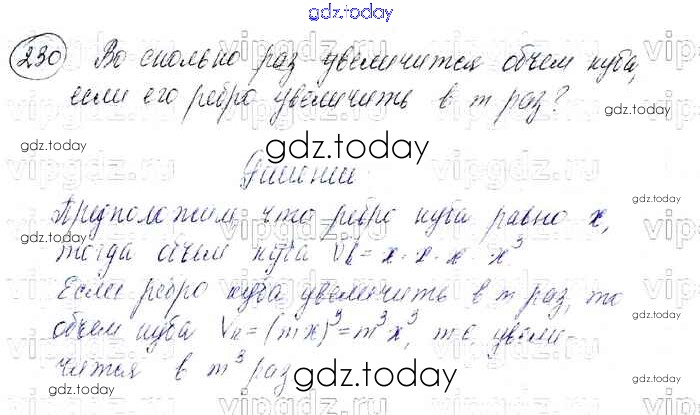 gdz.today
230 Во сколько раз увеличится объем куба,
если его ребро увеличить в m раз?
gdz.today
gdz.today
Решение:
Предположим что ребро куба равно x,
тогда объем куба Vк = x · x · x = x³
gdz.today
Если ребро куба увеличить в m раз, то
объем куба Vк = (mx)³ = m³x³, то увели-
чится в m³ раз
gdz.today
gdz.today